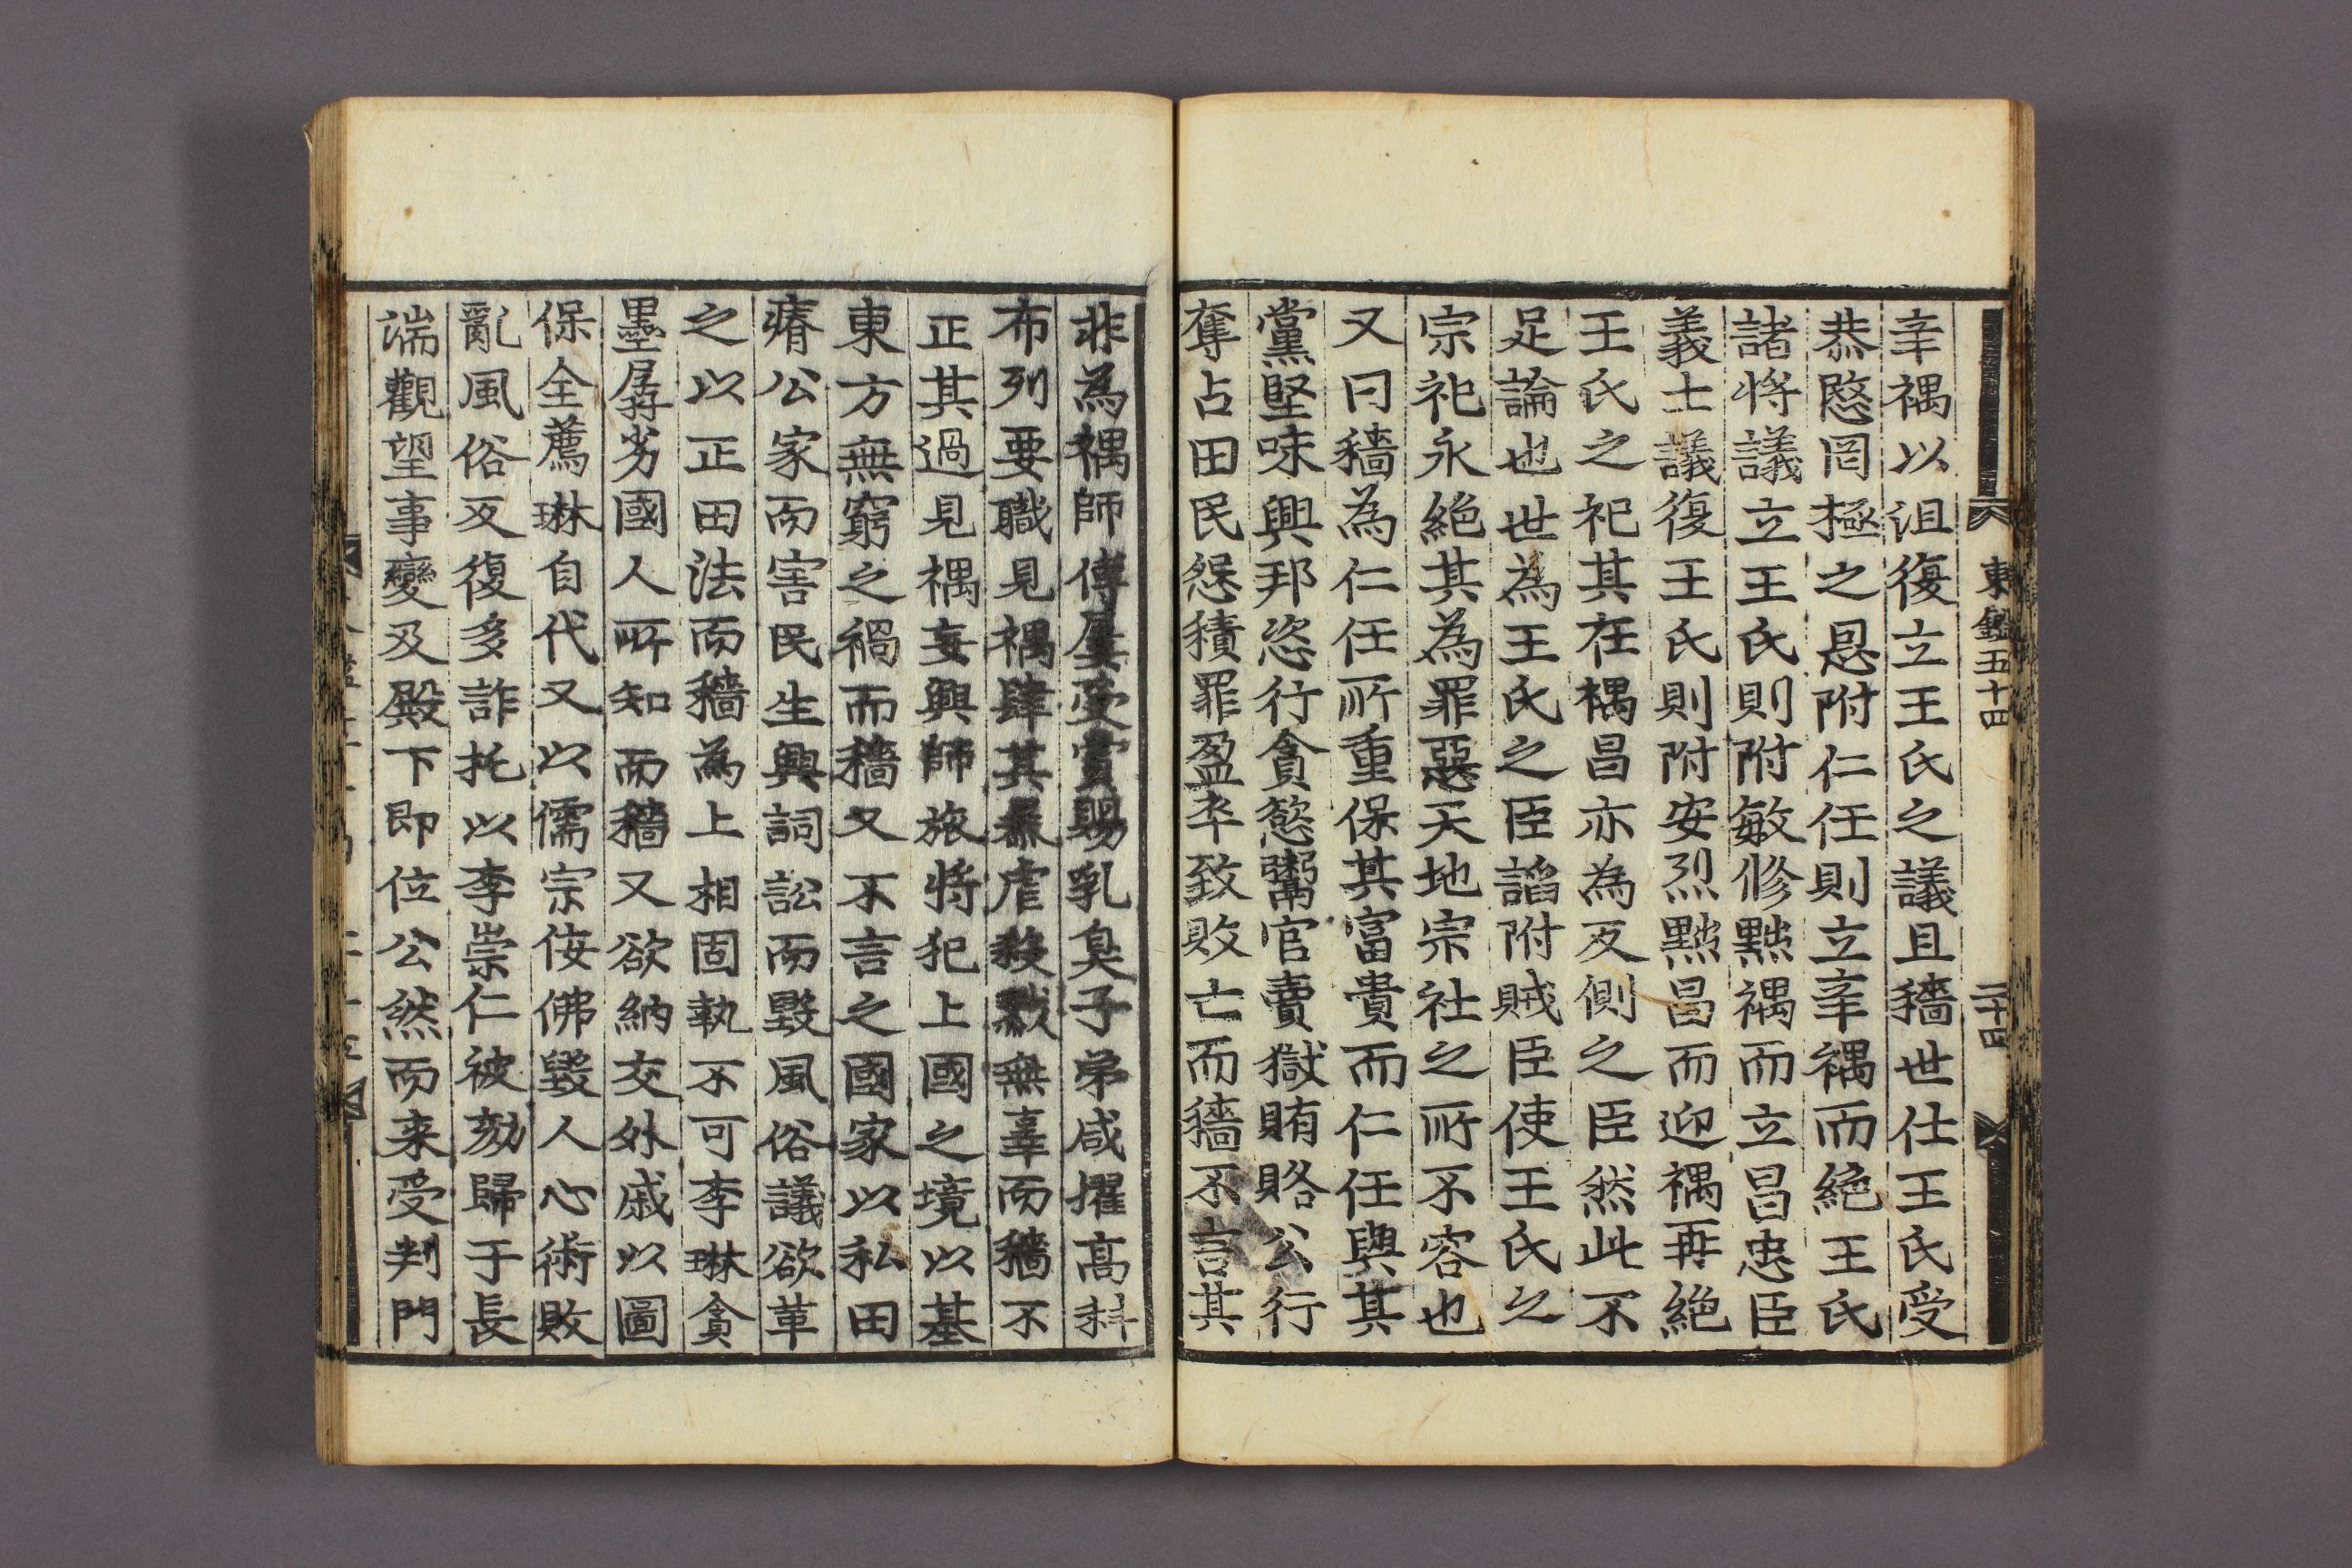 東鑑五十四
二十四
辛禑以沮復立王氏之議且穡世仕王氏受
恭愍罔極之恩附仁任則立辛禑而絶王氏
諸將議立王氏則附敏修黜禑而立昌忠臣
義士議復王氏則附安烈黜昌而迎禑再絶
王氏之祀其在禑昌亦為反側之臣然此不
足論也世為王氏之臣諂附賊臣使王氏之
宗祀永絶其為罪惡天地宗社之所不容也
又曰穡為仁任所重保其富貴而仁任與其
黨堅味興邦恣行貪慾鬻官賣獄賄賂公行
奪占田民怨積罪盈卒致敗亡而穡不言其
非為禑師傅屢受賞賜乳臭子弟咸擢高科
布列要職見禑肆其暴虐殺戮無辜而穡不
正其過見禑妄興師旅將犯上國之境以基
東方無窮之禍而穡又不言之國家以私田
瘠公家而害民生興詞訟而毀風俗議欲革
之以正田法而穡為上相固執不可李琳貪
墨孱劣國人所知而穡又欲納交外戚以圖
保全薦琳自代又以儒宗侫佛毀人心術敗
亂風俗反復多詐托以李崇仁被劾歸于長
湍觀望事變及殿下即位公然而来受判門